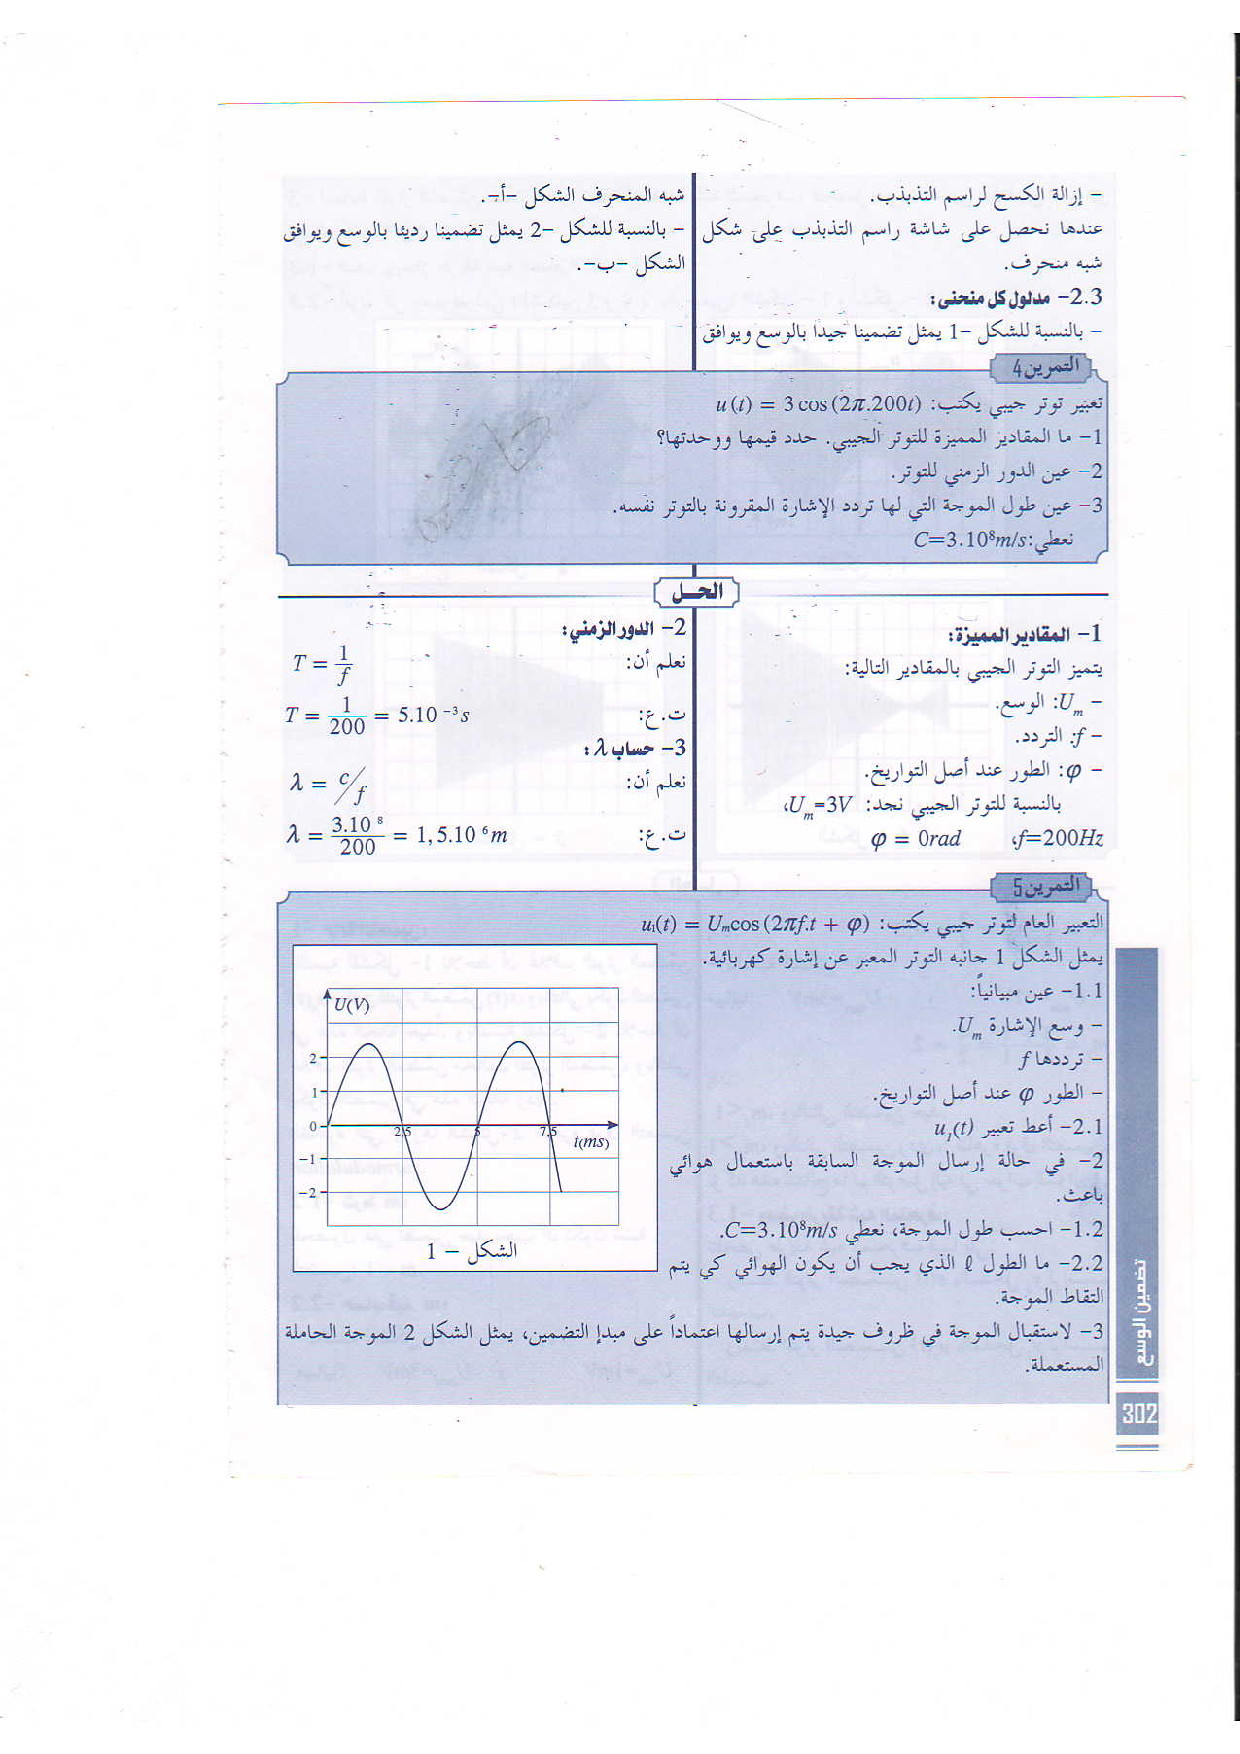 – إزالة الكسح لراسم التذبذب.
عندها نحصل على شاشة راسم التذبذب على شكل
شبه منحرف.
2.3– مدلول كل منحنى:
– بالنسبة للشكل –1 يمثل تضمينا جيدا بالوسع ويوافق
شبه المنحرف الشكل –أ–.
– بالنسبة للشكل –2 يمثل تضمينا رديئا بالوسع ويوافق
الشكل –ب–.
التمرين 4
تعبير توتر جيبي يكتب: u(t) = 3 cos (2π.200t)
1– ما المقادير المميزة للتوتر الجيبي. حدد قيمها ووحدتها؟
2– عين الدور الزمني للتوتر.
3– عين طول الموجة التي لها تردد الإشارة المقرونة بالتوتر نفسه.
نعطي: C=3.10⁸m/s
الحـل
1– المقادير المميزة:
يتميز التوتر الجيبي بالمقادير التالية:
– Uₘ: الوسع.
– f: التردد.
– φ: الطور عند أصل التواريخ.
بالنسبة للتوتر الجيبي نجد: Uₘ=3V،
f=200Hz، φ = 0rad
2– الدور الزمني:
نعلم أن: T = 1/f
ت.ع: T = 1/200 = 5.10⁻³s
3– حساب λ:
نعلم أن: λ = c/f
ت.ع: λ = 3.10⁸/200 = 1,5.10⁶m
التمرين 5
التعبير العام لتوتر جيبي يكتب: u₁(t) = Uₘcos (2πf.t + φ)
يمثل الشكل 1 جانبه التوتر المعبر عن إشارة كهربائية.
1.1– عين مبيانياً:
– وسع الإشارة Uₘ.
– ترددها f
– الطور φ عند أصل التواريخ.
2.1– أعط تعبير u₁(t)
2– في حالة إرسال الموجة السابقة باستعمال هوائي
باعث.
1.2– احسب طول الموجة، نعطي C=3.10⁸m/s.
2.2– ما الطول ℓ الذي يجب أن يكون الهوائي كي يتم
التقاط الموجة.
U(V)
2
1
0
–1
–2
2,5
5
7,5
t(ms)
الشكل – 1
3– لاستقبال الموجة في ظروف جيدة يتم إرسالها اعتماداً على مبدإ التضمين، يمثل الشكل 2 الموجة الحاملة
المستعملة.
تضمين الوسع
302